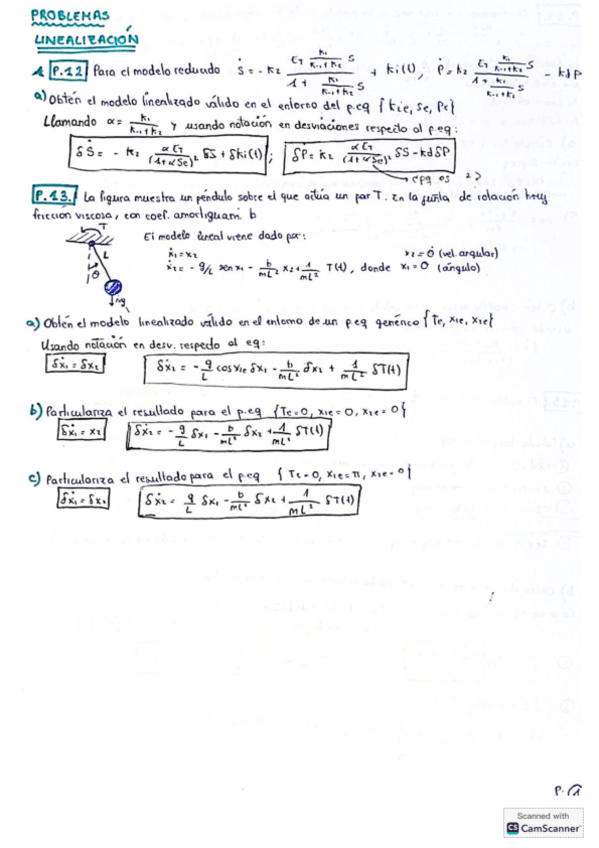 PROBLEMAS
LINEALIZACIÓN
P.12 Para el modelo reducido Ṡ = - k2 (ET k1/(k-1+k2) S)/(1 + k1/(k-1+k2) S) + ki(t), Ṗ = k2 (ET k1/(k-1+k2) S)/(1 + k1/(k-1+k2) S) - kdP
a) Obtén el modelo linealizado válido en el entorno del p.eq {kie, Se, Pe}
Llamando α = k1/(k-1+k2) y usando notación en desviaciones respecto al p.eq:
δṠ = - k2 αET/(1+αSe)² δS + δki(t); δṖ = k2 αET/(1+αSe)² δS - kdδP
P.13. La figura muestra un péndulo sobre el que actúa un par T. En la junta de rotación hay
fricción viscosa, con coef. amortiguam. b
T
L
θ
mg
El modelo lineal viene dado por:
ẋ1 = x2
ẋ2 = - g/L sen x1 - b/mL² x2 + 1/mL² T(t), donde x1 = θ (ángulo)
x2 = θ̇ (vel. angular)
a) Obtén el modelo linealizado válido en el entorno de un p.eq genérico {Te, x1e, x2e}
Usando notación en desv. respecto al eq:
δẋ1 = δx2 δẋ2 = - g/L cos x1e δx1 - b/mL² δx2 + 1/mL² δT(t)
b) Particulariza el resultado para el p.eq {Te=0, x1e=0, x2e=0}
δẋ1 = x2 δẋ2 = - g/L δx1 - b/mL² δx2 + 1/mL² δT(t)
c) Particulariza el resultado para el p.eq {Te=0, x1e=π, x2e=0}
δẋ1 = δx2 δẋ2 = g/L δx1 - b/mL² δx2 + 1/mL² δT(t)
P.1
Scanned with
CS CamScanner